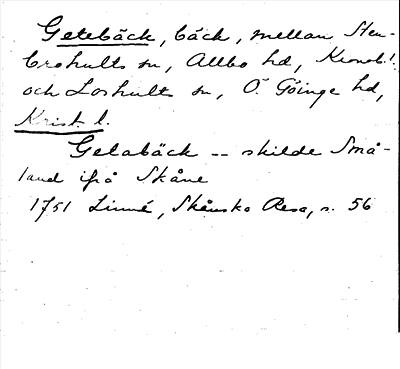 Getebäck, bäck, mellan Sten-
brohults sn, Allbo hd, Kronob. l.
och Loshult sn, Ö. Göinge hd,
Krist. l.
Getabäck -- skilde Små-
land ifrå Skåne
1751 Linné, Skånska Resa, s. 56